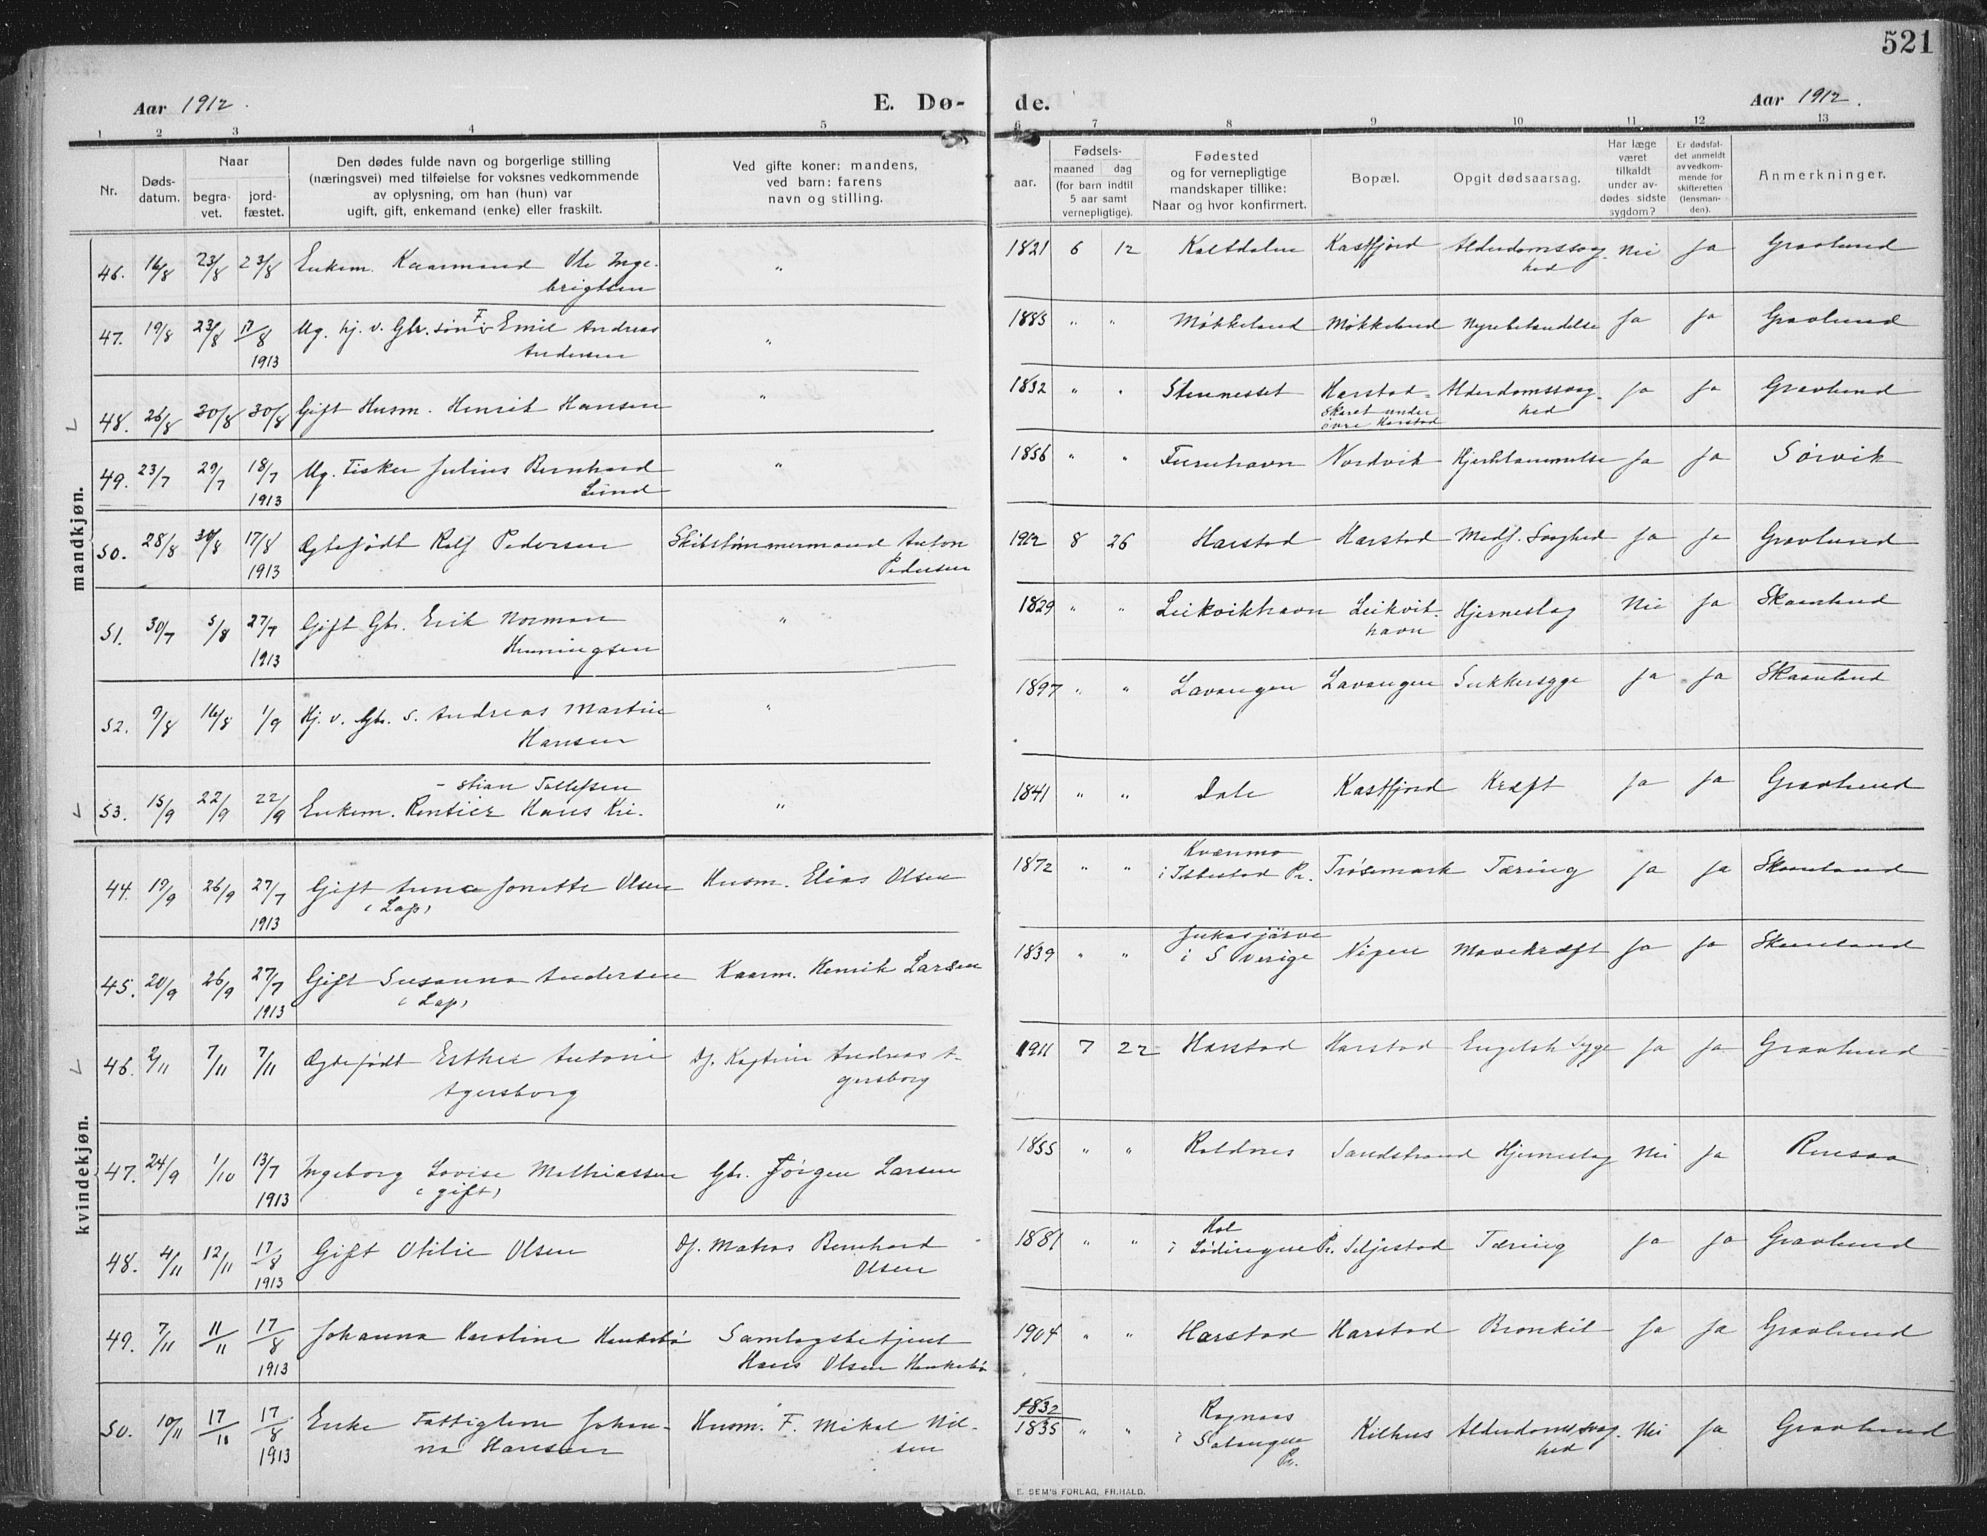 521
Aar 1912.
E. Dø-
de.
Aar 1912.
1 2 3 4 5 6 7 8 9 10 11 12 13
Nr.
Døds-
datum.
Naar
begra-
vet.
jord-
fæstet.
Den dødes fulde navn og borgerlige stilling
(næringsvei) med tilføielse for voksnes vedkommende
av oplysning, om han (hun) var
ugift, gift, enkemand (enke) eller fraskilt.
Ved gifte koner: mandens,
ved barn: farens
navn og stilling.
Fødsels-
aar.
maaned dag
(for barn indtil
5 aar samt
vernepligtige).
Fødested
og for vernepligtige
mandskaper tillike:
Naar og hvor konfirmert.
Bopæl.
Opgit dødsaarsag.
Har læge
været
tilkaldt
under av-
dødes sidste
sygdom?
Er dødsfal-
det anmeldt
av vedkom-
mende for
skifteretten
(lensman-
den).
Anmerkninger.
mandkjøn.
46. 16/8 23/8 23/8 Enkem. Kaarmand Ole Inge-
brigtsen " 1821 6 12 Kaltdalen Kastfjord Alderdomssvag-
hed Nei Ja Gravlund
47. 19/8 23/8 17/8
1913 Ug. hj. v. Gbr. søn F. Emil Andreas
Andersen " 1885 " " Møkkeland Møkkeland Nyrebetændelse Ja Ja Gravlund
48. 26/8 30/8 30/8 Gift Husm. Henrik Hansen " 1832 " " Stennesset Harstad-
Skaret under
øvre Harstad Alderdomssvag-
hed Ja Ja Gravlund
49. 23/7 29/7 18/7
1913 Ug. Fisker Julius Bernhard
Lund " 1856 " " Furuhavn Nordvik Hjertelammelse Ja Ja Sørvik
50. 28/8 30/8 17/8
1913 Ægtefødt Rolf Pedersen Skibstømmermand Anton
Pedersen 1912 8 26 Harstad Harstad Medf. Svaghed Ja Ja Gravlund
51. 30/7 5/8 27/7
1913 Gift Gbr. Erik Norman
Henningsen " 1829 " " Leikvikhavn Leikvik
havn Hjerneslag Nei Ja Skaanlund
52. 9/8 16/8 1/9 Hj. v. Gbr. s. Andreas Martin
Hansen " 1897 " " Lavangen Lavangen Sukkersyge Ja Ja Skaanland
- stian Tollefsen
53. 15/9 22/9 22/9 Enkem. Rentier Hans Kri- " 1841 " " Dale Kastfjord Kræft Ja Ja Gravlund
kvindekjøn.
44. 19/9 26/9 27/7
1913 Gift Anna Jonette Olsen
(Lap) Husm. Elias Olsen 1872 " " Kvænmo
i Ibbestad Pr. Trøsemark Tæring Ja Ja Skaanland
45. 20/9 26/9 27/7
1913 Gift Susanna Andersen
(Lap) Kaarm. Henrik Larsen 1839 " " Jukasjärve
i Sverige Nipen Mavekræft Ja Ja Skaanland
46. 2/11 7/11 7/11 Ægtefødt Esther Antonie
Agersborg Df. Kaptein Andreas A-
gersborg 1911 7 22 Harstad Harstad Engelsk Syge Ja Ja Gravlund
47. 24/9 1/10 13/7
1913 Ingeborg Lovise Mathiassen
(gift) Gbr. Jørgen Larsen 1855 " " Roldnes Sandstrand Hjerneslag Nei Ja Rensaa
48. 4/11 12/11 17/8
1913 Gift Otilie Olsen Df. Matros Bernhard
Olsen 1881 " " Hol
i Lødingen Pr. Seljestad Tæring Ja Ja Gravlund
49. 7/11 11/11 17/8
1913 Johanna Karoline Henkebø Samlagsbetjent
Hans Olsen Henkebø 1904 " " Harstad Harstad Bronkit Ja Ja Gravlund
50. 10/11 17/11 17/8
1913 Enke Fattiglem Johan-
na Hansen Husm. F. Mikal Nil-
sen 1832
1835 " " Ragnaas
i Salangen
Pr. Kilhus Alderdomssvag-
hed Nei Ja Gravlund
E. SEM'S FORLAG, FR.HALD.